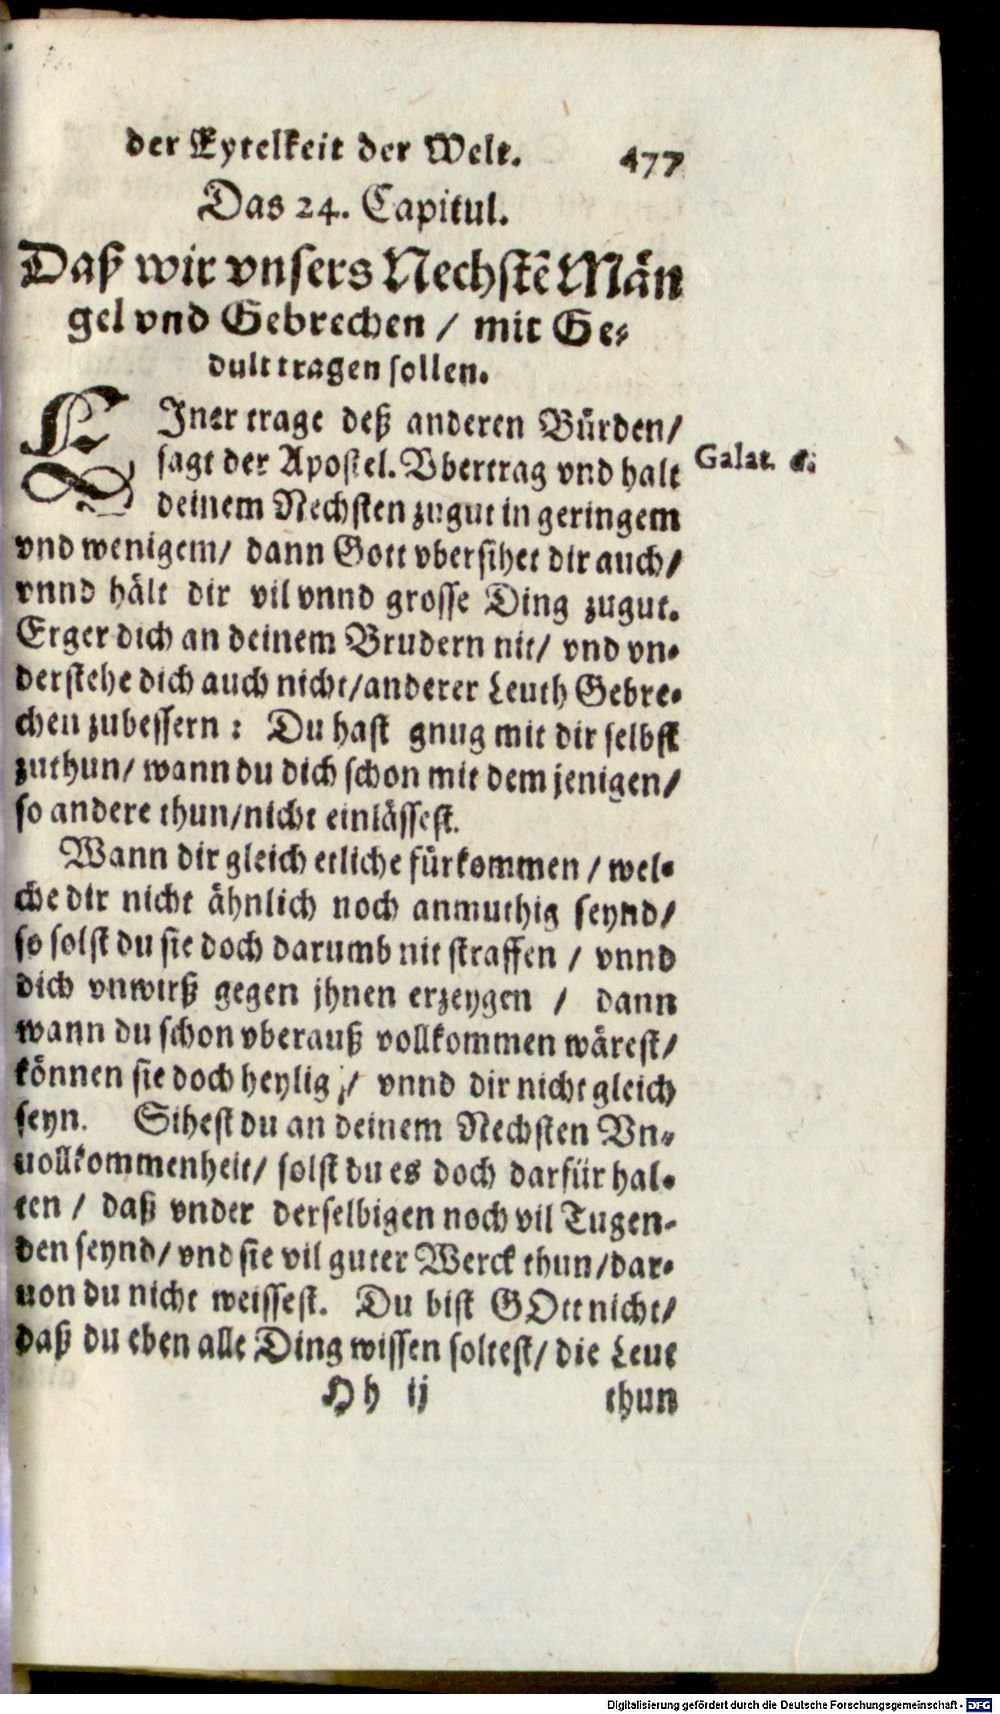 der Eytelkeit der Welt. 477
Das 24. Capitul.
Daß wir vnsers Nechstẽ Män
gel vnd Gebrechen / mit Ge-
dult tragen sollen.
EIner trage deß anderen Bürden/
sagt der Apostel. Vbertrag vnd halt
Galat. 6.
deinem Nechsten zugut in geringem
vnd wenigem/ dann Gott vbersihet dir auch/
vnnd hält dir vil vnnd grosse Ding zugut.
Erger dich an deinem Brudern nit/ vnd vn-
derstehe dich auch nicht/anderer Leuth Gebre-
chen zubessern : Du hast gnug mit dir selbst
zuthun/ wann du dich schon mit dem jenigen/
so andere thun/nicht einlässest.
Wann dir gleich etliche fürkommen / wel-
che dir nicht ähnlich noch anmuthig seynd/
so solst du sie doch darumb nit straffen / vnnd
dich vnwirß gegen jhnen erzeygen / dann
wann du schon vberauß vollkommen wärest/
können sie doch heylig / vnnd dir nicht gleich
seyn. Sihest du an deinem Nechsten Vn-
uollkommenheit/ solst du es doch darfür hal-
ten / daß vnder derselbigen noch vil Tugen-
den seynd/ vnd sie vil guter Werck thun/dar-
uon du nicht weissest. Du bist GOtt nicht/
daß du eben alle Ding wissen soltest/ die Leut
Hh ij thun
Digitalisierung gefördert durch die Deutsche Forschungsgemeinschaft - DFG